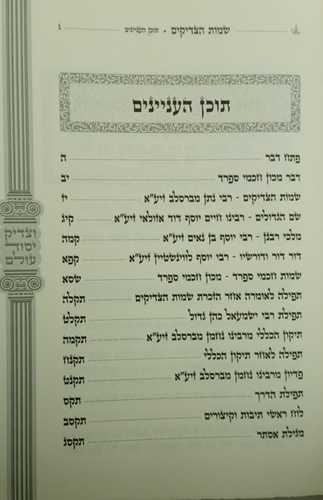 שמות הצדיקים • תוכן הענינים
תוכן העניינים
פתח דבר ה
דבר מכון חכמי ספרד יב
שמות הצדיקים - רבי נתן מברסלב זיע״א יז
שם הגדולים - רבינו חיים יוסף דוד אזולאי זיע״א קיג
מלכי רבנן - רבי יוסף בן נאים זיע״א קמה
דור דור ודורשיו - רבי יוסף לוינשטיין זיע״א קפא
שמות חכמי ספרד - מכון חכמי ספרד שסא
תפילה לאומרה אחר הזכרת שמות הצדיקים תקלה
תפילת רבי ישמעאל כהן גדול תקלט
תיקון הכללי מרבינו נחמן מברסלב זיע״א תקמה
תפילה לאחר תיקון הכללי תקנח
פדיון מרבינו נחמן מברסלב זיע״א תקנט
תפילת הדרך תקס
לוח ראשי תיבות וקיצורים תקסב
מגילת אסתר תקסג
וצדיק
יסוד
עולם